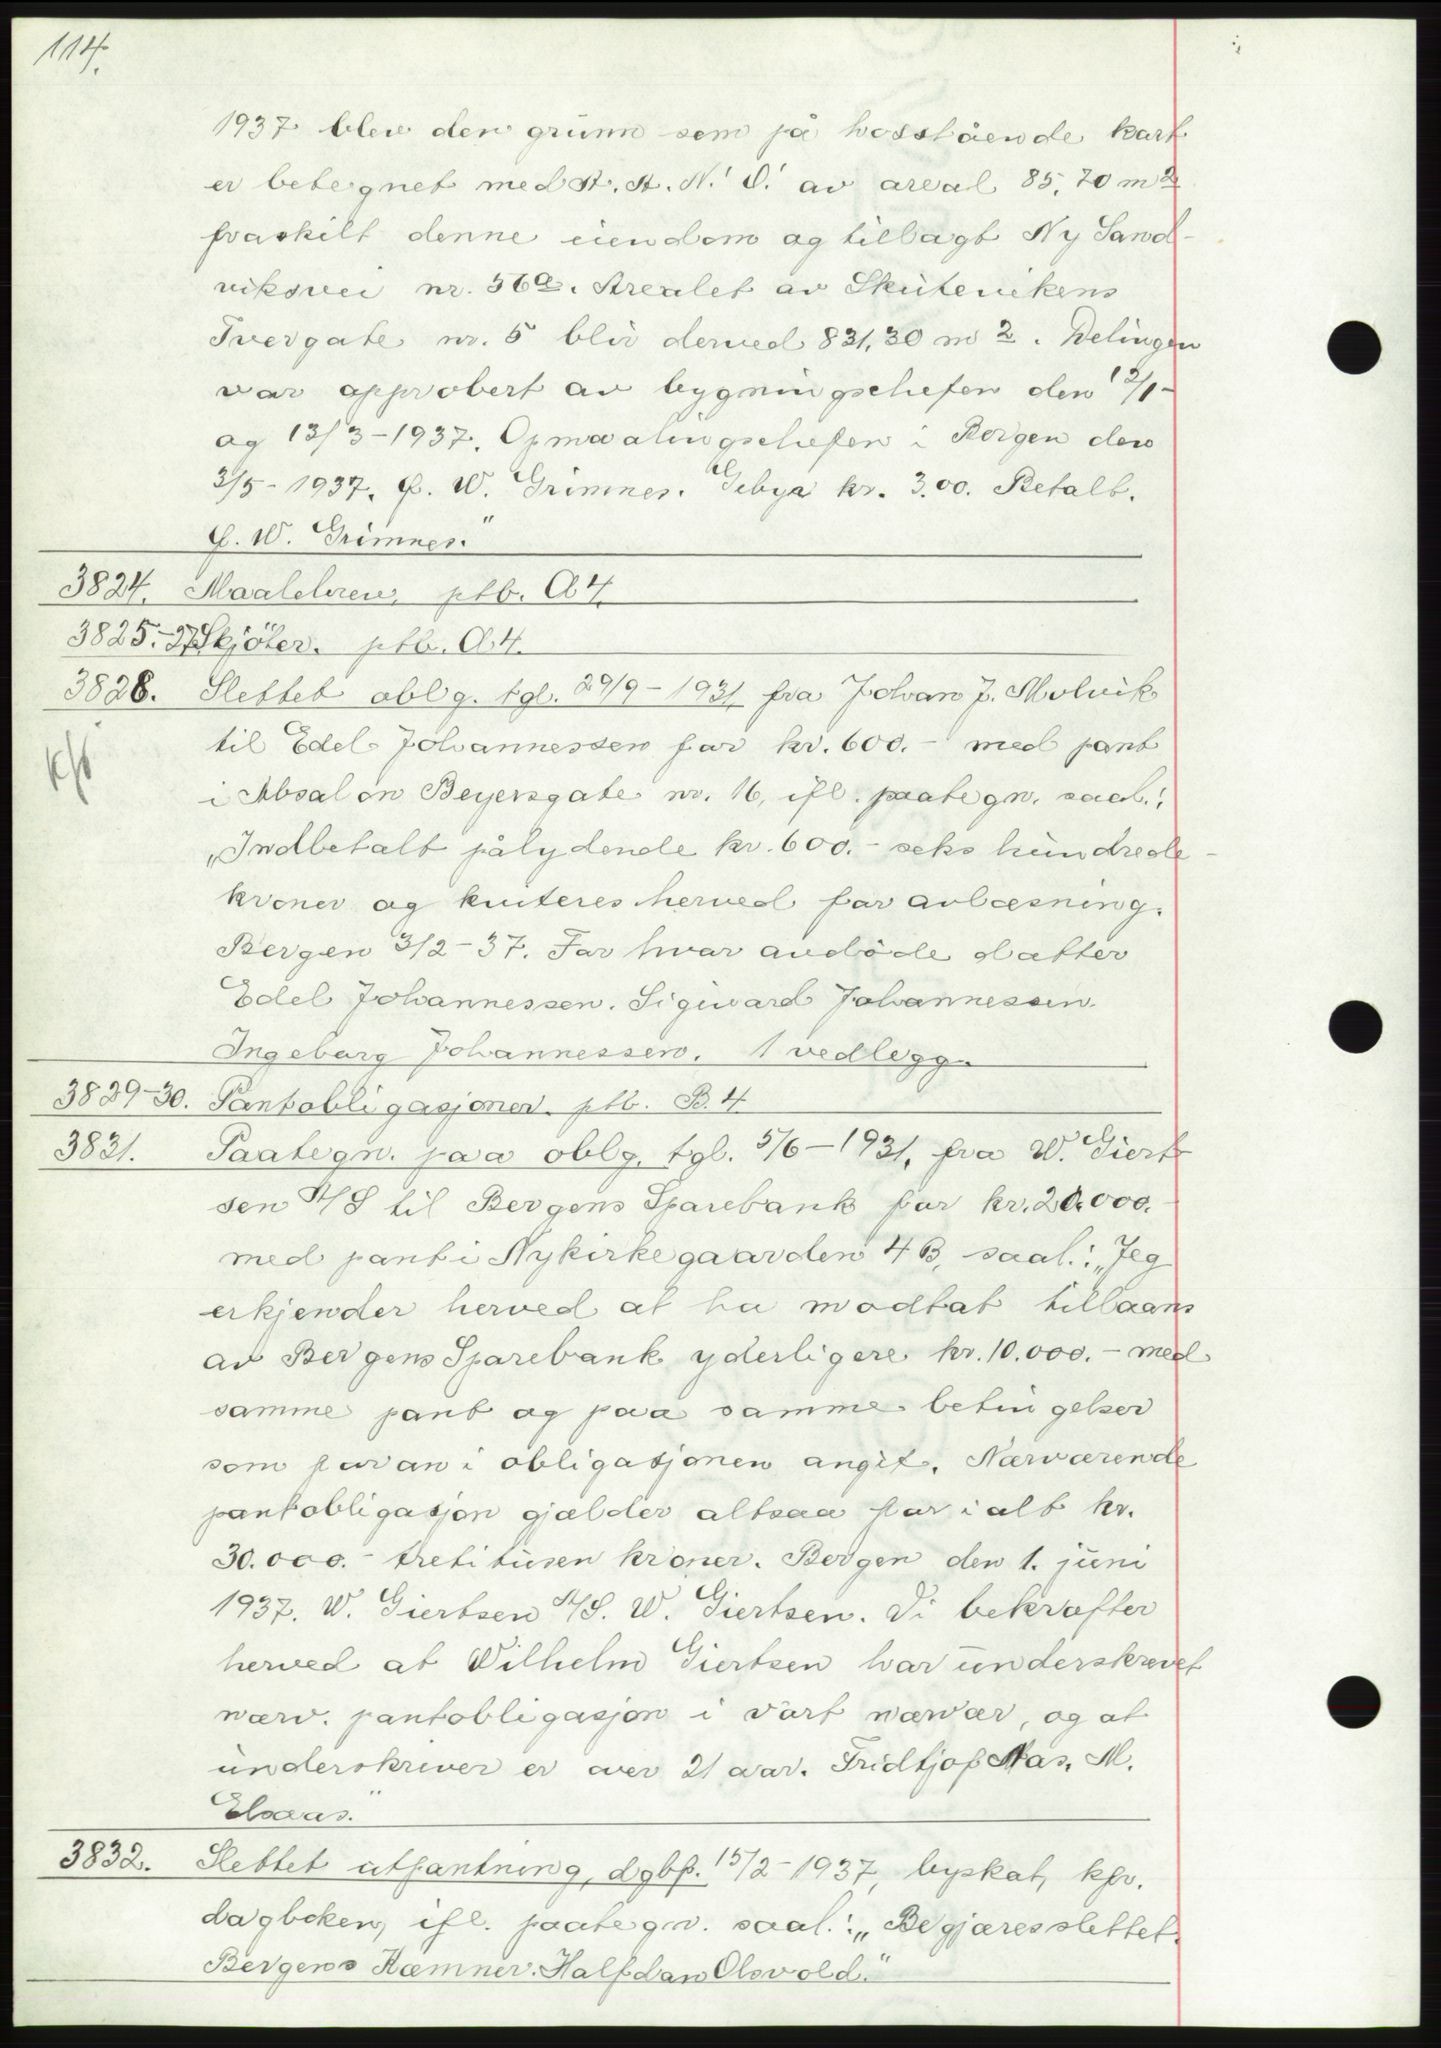 114.
1937 blev den grunn som på hosstående kart
er betegnet med A. A. N.' O.' av areal 85,70 m2
fraskilt denne eiendom og tillagt Ny Sand-
viksvei nr. 56a. Arealet av Skutevikens
Tvergate nr. 5 blir derved 831,30 m2. Delingen
var approbert av bygningschefen den 12/1-
og 13/3-1937. Opmaalingschefen i Bergen den
3/5-1937. W. Grimnes. Gebyr kr. 3.00. Betalt.
W. Grimnes."
3824. Maalebrev, ptb. A4.
3825.-27 Skjöter. ptb. A4.
3828. Slettet oblg. tgl. 29/9-1931 fra Johan J. Molvik
til Edel Johannessen for kr. 600.- med pant
i Absalon Beyersgate nr. 16, ifl. paategn. saal.:
„Indbetalt pålydende kr. 600.- seks hundrede-
kroner og kviteres herved for avlæsning.
Bergen 3/2-37. For hvor avdöde datter
Edel Johannessen. Sigward Johannessen.
Ingeborg Johannessen. 1 vedlegg.
3829-30. Pantobligasjoner. ptb. B.4
3831. Paategn. paa oblg. tgl. 5/6-1931, fra W. Giert-
sen A/S til Bergens Sparebank for kr. 20.000.-
med pant i Nykirkegaarden 4B, saal.: „Jeg
erkjender herved at ha modtat tillaans
av Bergens Sparebank yderligere kr. 10.000.- med
samme pant og paa samme betingelser
som foran i obligasjonen angit. Nærværende
pantobligasjon gjælder altsaa for ialt kr.
30.000.- tretitusen kroner. Bergen den 1. juni
1937. W. Giertsen A/S. W. Giertsen. Vi bekræfter
herved at Wilhelm Giertsen har underskrevet
nærv. pantobligasjon i vort nærvær, og at
underskriver er over 21 aar. Fridtjof Aas. M.
Elsaas."
3832. Slettet utpantning, dgbf. 15/2-1937, byskat, kfr.
dagboken, ifl. paategn. saal.: „Begjæres slettet.
Bergens Kæmner. Halfdan Olsvold."